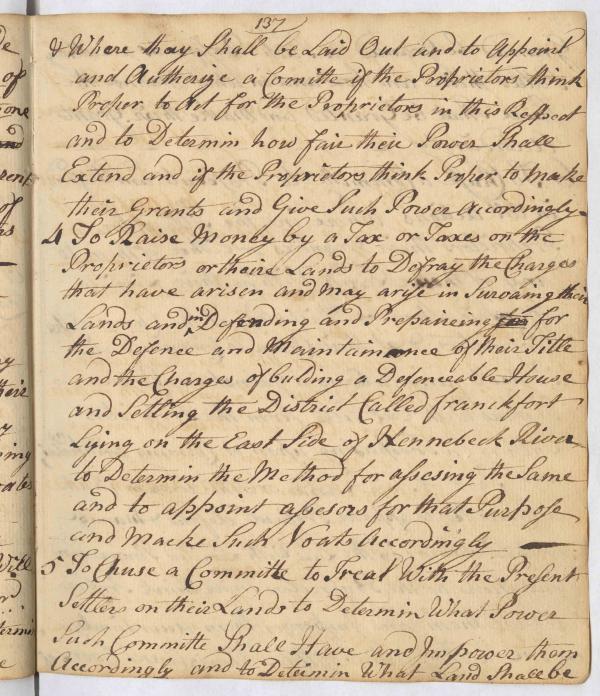 137
& Where thay Shall be Laid Out and to Appoint
and Authorize a Comitte if the Proprietors think
Proper to Act for the Proprietors in this Respect
and to Determin how fair their Power Shall
Extend and if the Proprietors think Proper to make
their Grants and Give Such Power Accordingly
4 To Raise Money by a Tax or Taxes on the
Proprietors or theire Lands to Defray the Charges
that have arisen and may arise in Survaing their
Lands and in Defending and Prepaireing for
the Defence and Maintainance of their Title
and the Charges of bulding a Defenceable House
and Setling the District Called Franckfort
Lying on the East Side of Kennebeck River
to Determin the Method for assesing the Same
and to appoint assesors for that Purpose
and Macke Such Voats Accordingly
5 To Chuse a Committe to Treat With the Present
Settlers on their Lands to Determin What Power
Such Committe Shall Have and Impower them
Accordingly and to Determin What Land Shall be